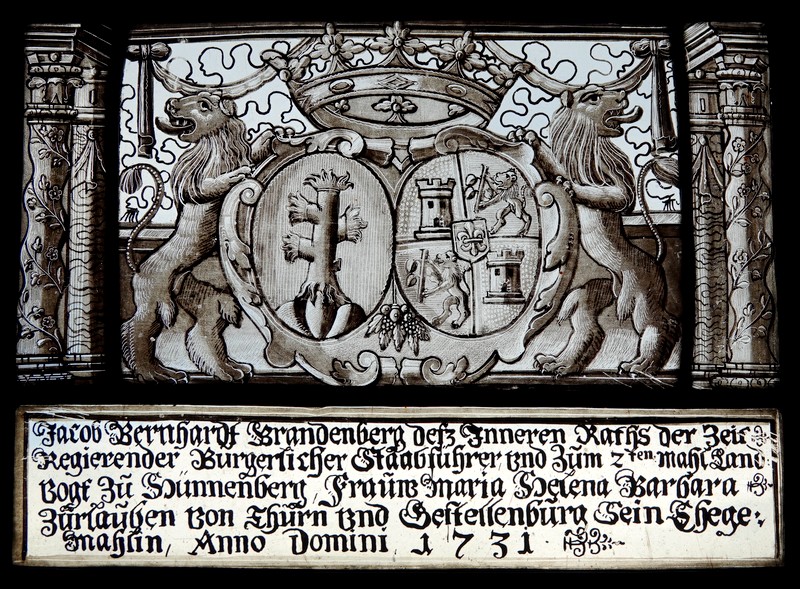 Jacob Bernhardt Brandenberg desz Inneren Raths der Zeit
Regierender Burgerlicher Staabführer vnd Zum 2ten mahl Land
vogt Zu Hünnenberg, Frauw Maria Helena Barbara
Zurlauben von Thurn vnd Gestellenburg Sein Ehege:
Mahlin, Anno Domini, 1731.